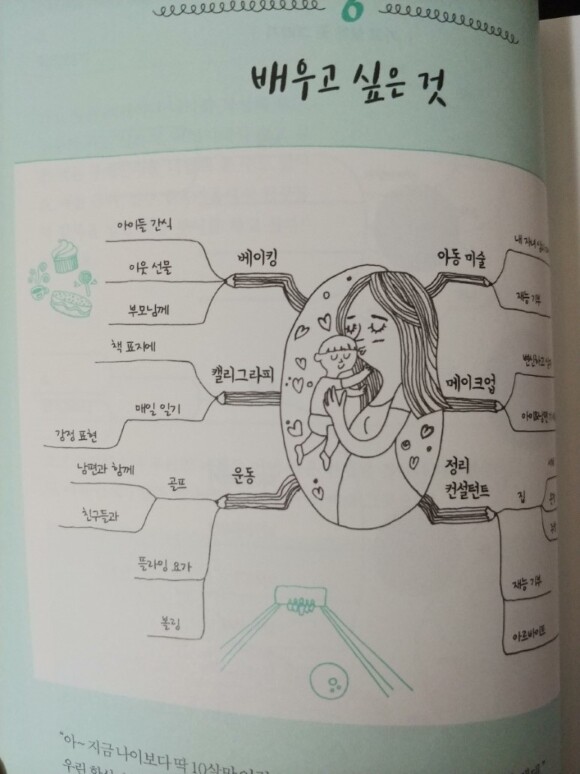 6
배우고 싶은 것
아이들 간식
이웃 선물
부모님께
베이킹
책 표지에
매일 일기
감정 표현
캘리그라피
남편과 함께
친구들과
골프
플라잉 요가
볼링
운동
아동 미술
내 자녀
재능 기부
메이크업
변신하고
정리
컨설턴트
집
재능 기부
아르바이트
"아~ 지금 나이보다 딱 10살만
우리